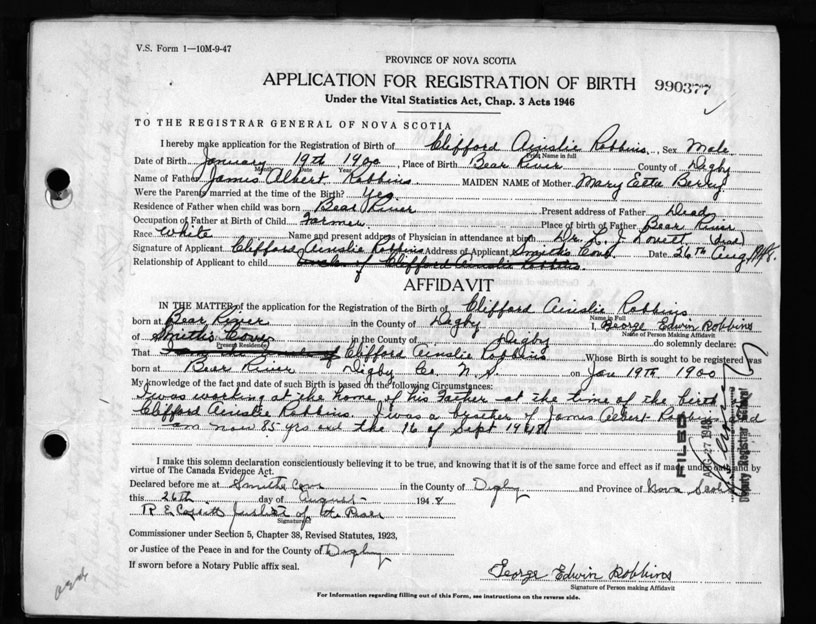 V.S. Form 1—10M-9-47
PROVINCE OF NOVA SCOTIA
APPLICATION FOR REGISTRATION OF BIRTH 990377
Under the Vital Statistics Act, Chap. 3 Acts 1946
TO THE REGISTRAR GENERAL OF NOVA SCOTIA
I hereby make application for the Registration of Birth of Clifford Ainslie Robbins, Sex Male
Print Name in full
Date of Birth January 19th 1900, Place of Birth Bear River County of Digby
Month Date Year
Name of Father James Albert Robbins MAIDEN NAME of Mother Mary Etta Berry
Were the Parents married at the time of the Birth? Yes
Residence of Father when child was born Bear River Present address of Father Dead
Occupation of Father at Birth of Child Farmer Place of birth of Father Bear River
Race White Name and present address of Physician in attendance at birth Dr. L. J. Lovett (Dead)
Signature of Applicant Clifford Ainslie Robbins Address of Applicant Smiths Cove Date 26th Aug, 1948.
Relationship of Applicant to child Uncle of Clifford Ainslie Robbins
AFFIDAVIT
IN THE MATTER of the application for the Registration of the Birth of Clifford Ainslie Robbins
Name in Full
born at Bear River in the County of Digby I, George Edwin Robbins
Name of Person Making Affidavit
of Smith's Cove in the County of Digby do solemnly declare:
Present Residence
That Clifford Ainslie Robbins Whose Birth is sought to be registered was
born at Bear River Digby Co. N.S. on Jan 19th 1900
My knowledge of the fact and date of such Birth is based on the following Circumstances:
I was working at the home of his Father at the time of the birth
Clifford Ainslie Robbins. I was a brother of James Albert Robbins and
am now 85 yrs end the 16 of Sept 1948.
FILED
27 1948
Deputy Registrar General
I make this solemn declaration conscientiously believing it to be true, and knowing that it is of the same force and effect as if made under oath and by
virtue of The Canada Evidence Act.
Declared before me at Smiths Cove in the County of Digby and Province of Nova Scotia
this 26th day of August 1948
R E Justice of the Peace
Signature of
Commissioner under Section 5, Chapter 38, Revised Statutes, 1923,
or Justice of the Peace in and for the County of Digby
If sworn before a Notary Public affix seal.
George Edwin Robbins
Signature of Person making Affidavit
For Information regarding filling out of this Form, see instructions on the reverse side.